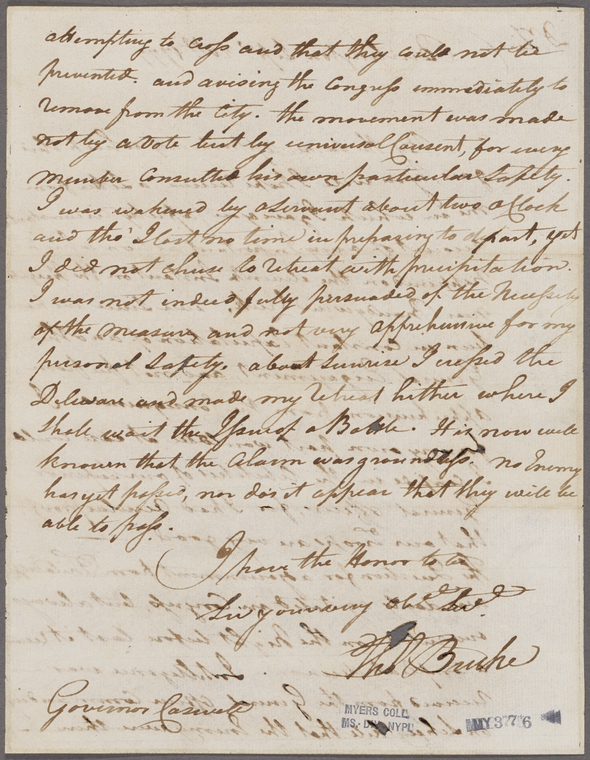 attempting to cross and that they could not be
prevented. and avising the Congress immediately to
remove from the City. the movement was made
not by a Vote but by universal Consent, for every
member Consulted his own particular Safety.
I was wakened by a Servant about two oClock
and tho' I lost no time in preparing to depart, yet
I did not chuse to retreat with precipitation.
I was not indeed fully persuaded of the Necessity
of the measure, and not very apprehensive for my
personal Safety. about Sunrise I crossed the
Deleware and made my retreat hither where I
shall wait the Issue of a Battle. It is now well
known that the Alarm was groundless. no Enemy
has yet passed, nor does it appear that they will be
able to pass.
I have the Honor to be
Sir your very Obed. Servt.
Thos Burke
Governor Caswell
MYERS COLL
MS. DIV. NYPL